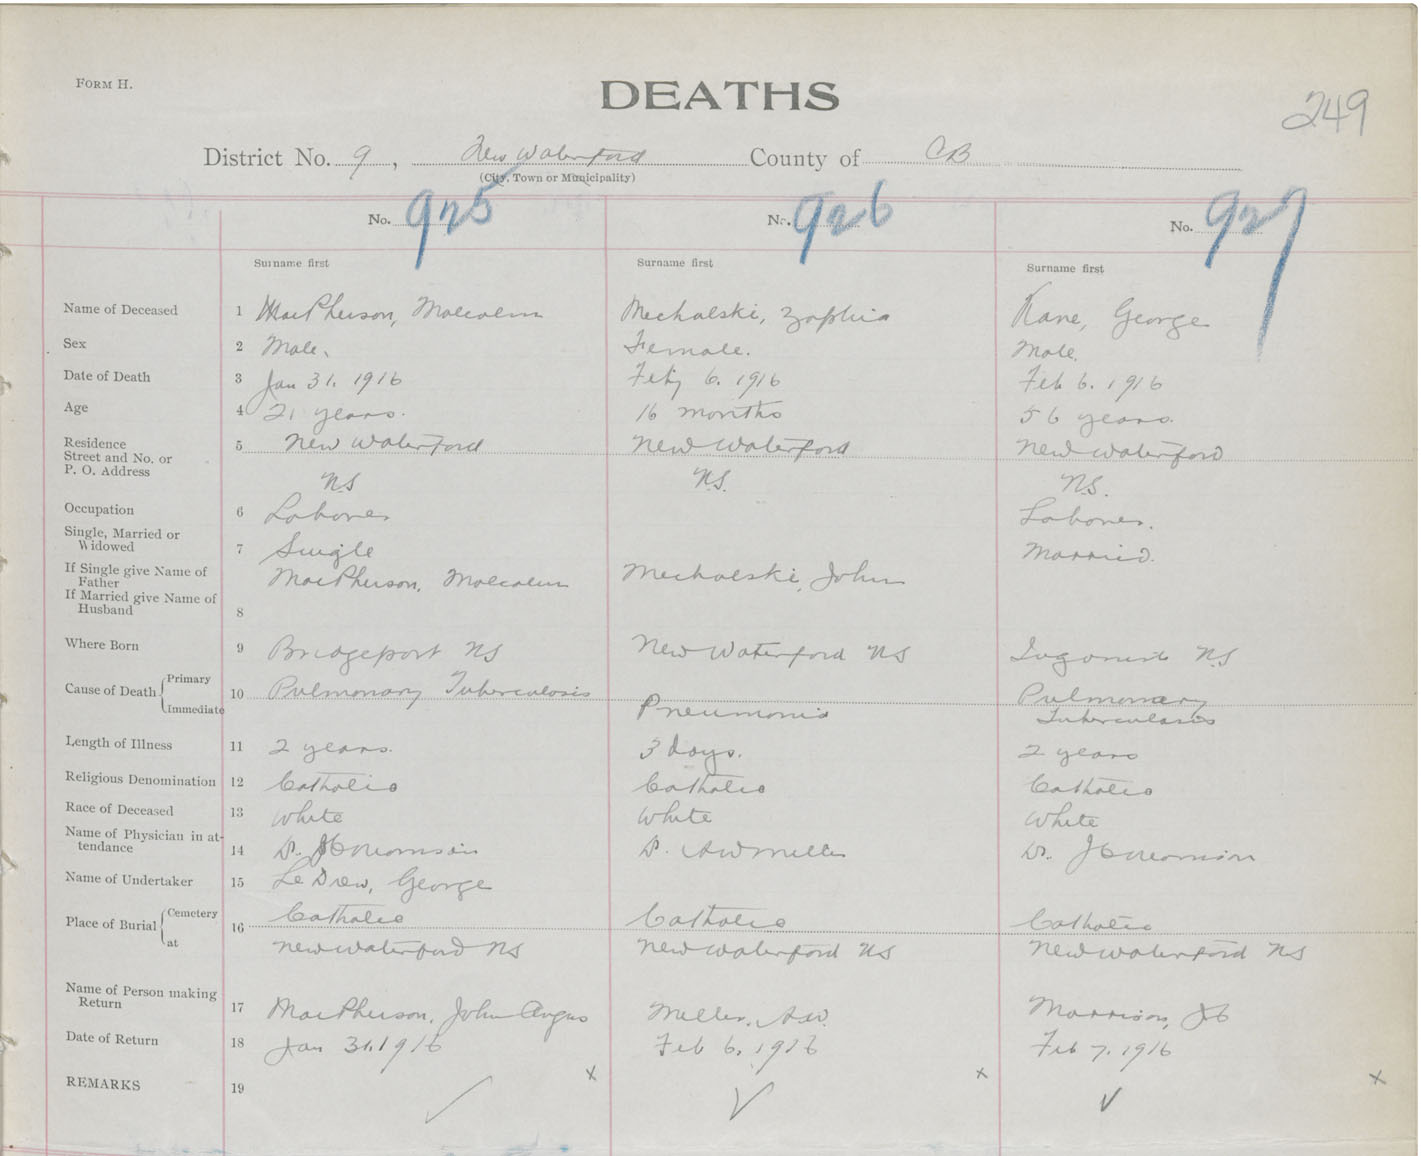 FORM H.
DEATHS
249
District No. 9, New Waterford County of CB
(City, Town or Municipality)
No. 925 No. 926 No. 927
Surname first Surname first Surname first
Name of Deceased 1 MacPherson, Malcolm Mechalski, Zophia Kane, George
Sex 2 Male. Female. Male.
Date of Death 3 Jan 31. 1916 Feby 6. 1916 Feb 6. 1916
Age 4 21 years. 16 months 56 years.
Residence 5 New Waterford New Waterford New Waterford
Street and No. or
P. O. Address NS NS. NS.
Occupation 6 Laborer Laborer.
Single, Married or
Widowed 7 Single Married.
If Single give Name of
Father MacPherson, Malcolm Mechalski, John
If Married give Name of
Husband 8
Where Born 9 Bridgeport NS New Waterford NS NS
Cause of Death Primary 10 Pulmonary Tuberculosis Pulmonary
Immediate Pneumonia Tuberculosis
Length of Illness 11 2 years. 3 days. 2 years
Religious Denomination 12 Catholic Catholic Catholic
Race of Deceased 13 White White White
Name of Physician in at-
tendance 14 Dr. Dr. AW Miller Dr. J
Name of Undertaker 15 Le Drew, George
Place of Burial Cemetery 16 Catholic Catholic Catholic
at New Waterford NS New Waterford NS New Waterford NS
Name of Person making
Return 17 MacPherson, John Angus Miller, AW. Morrison,
Date of Return 18 Jan 31. 1916 Feb 6. 1916 Feb 7. 1916
REMARKS 19 x x x